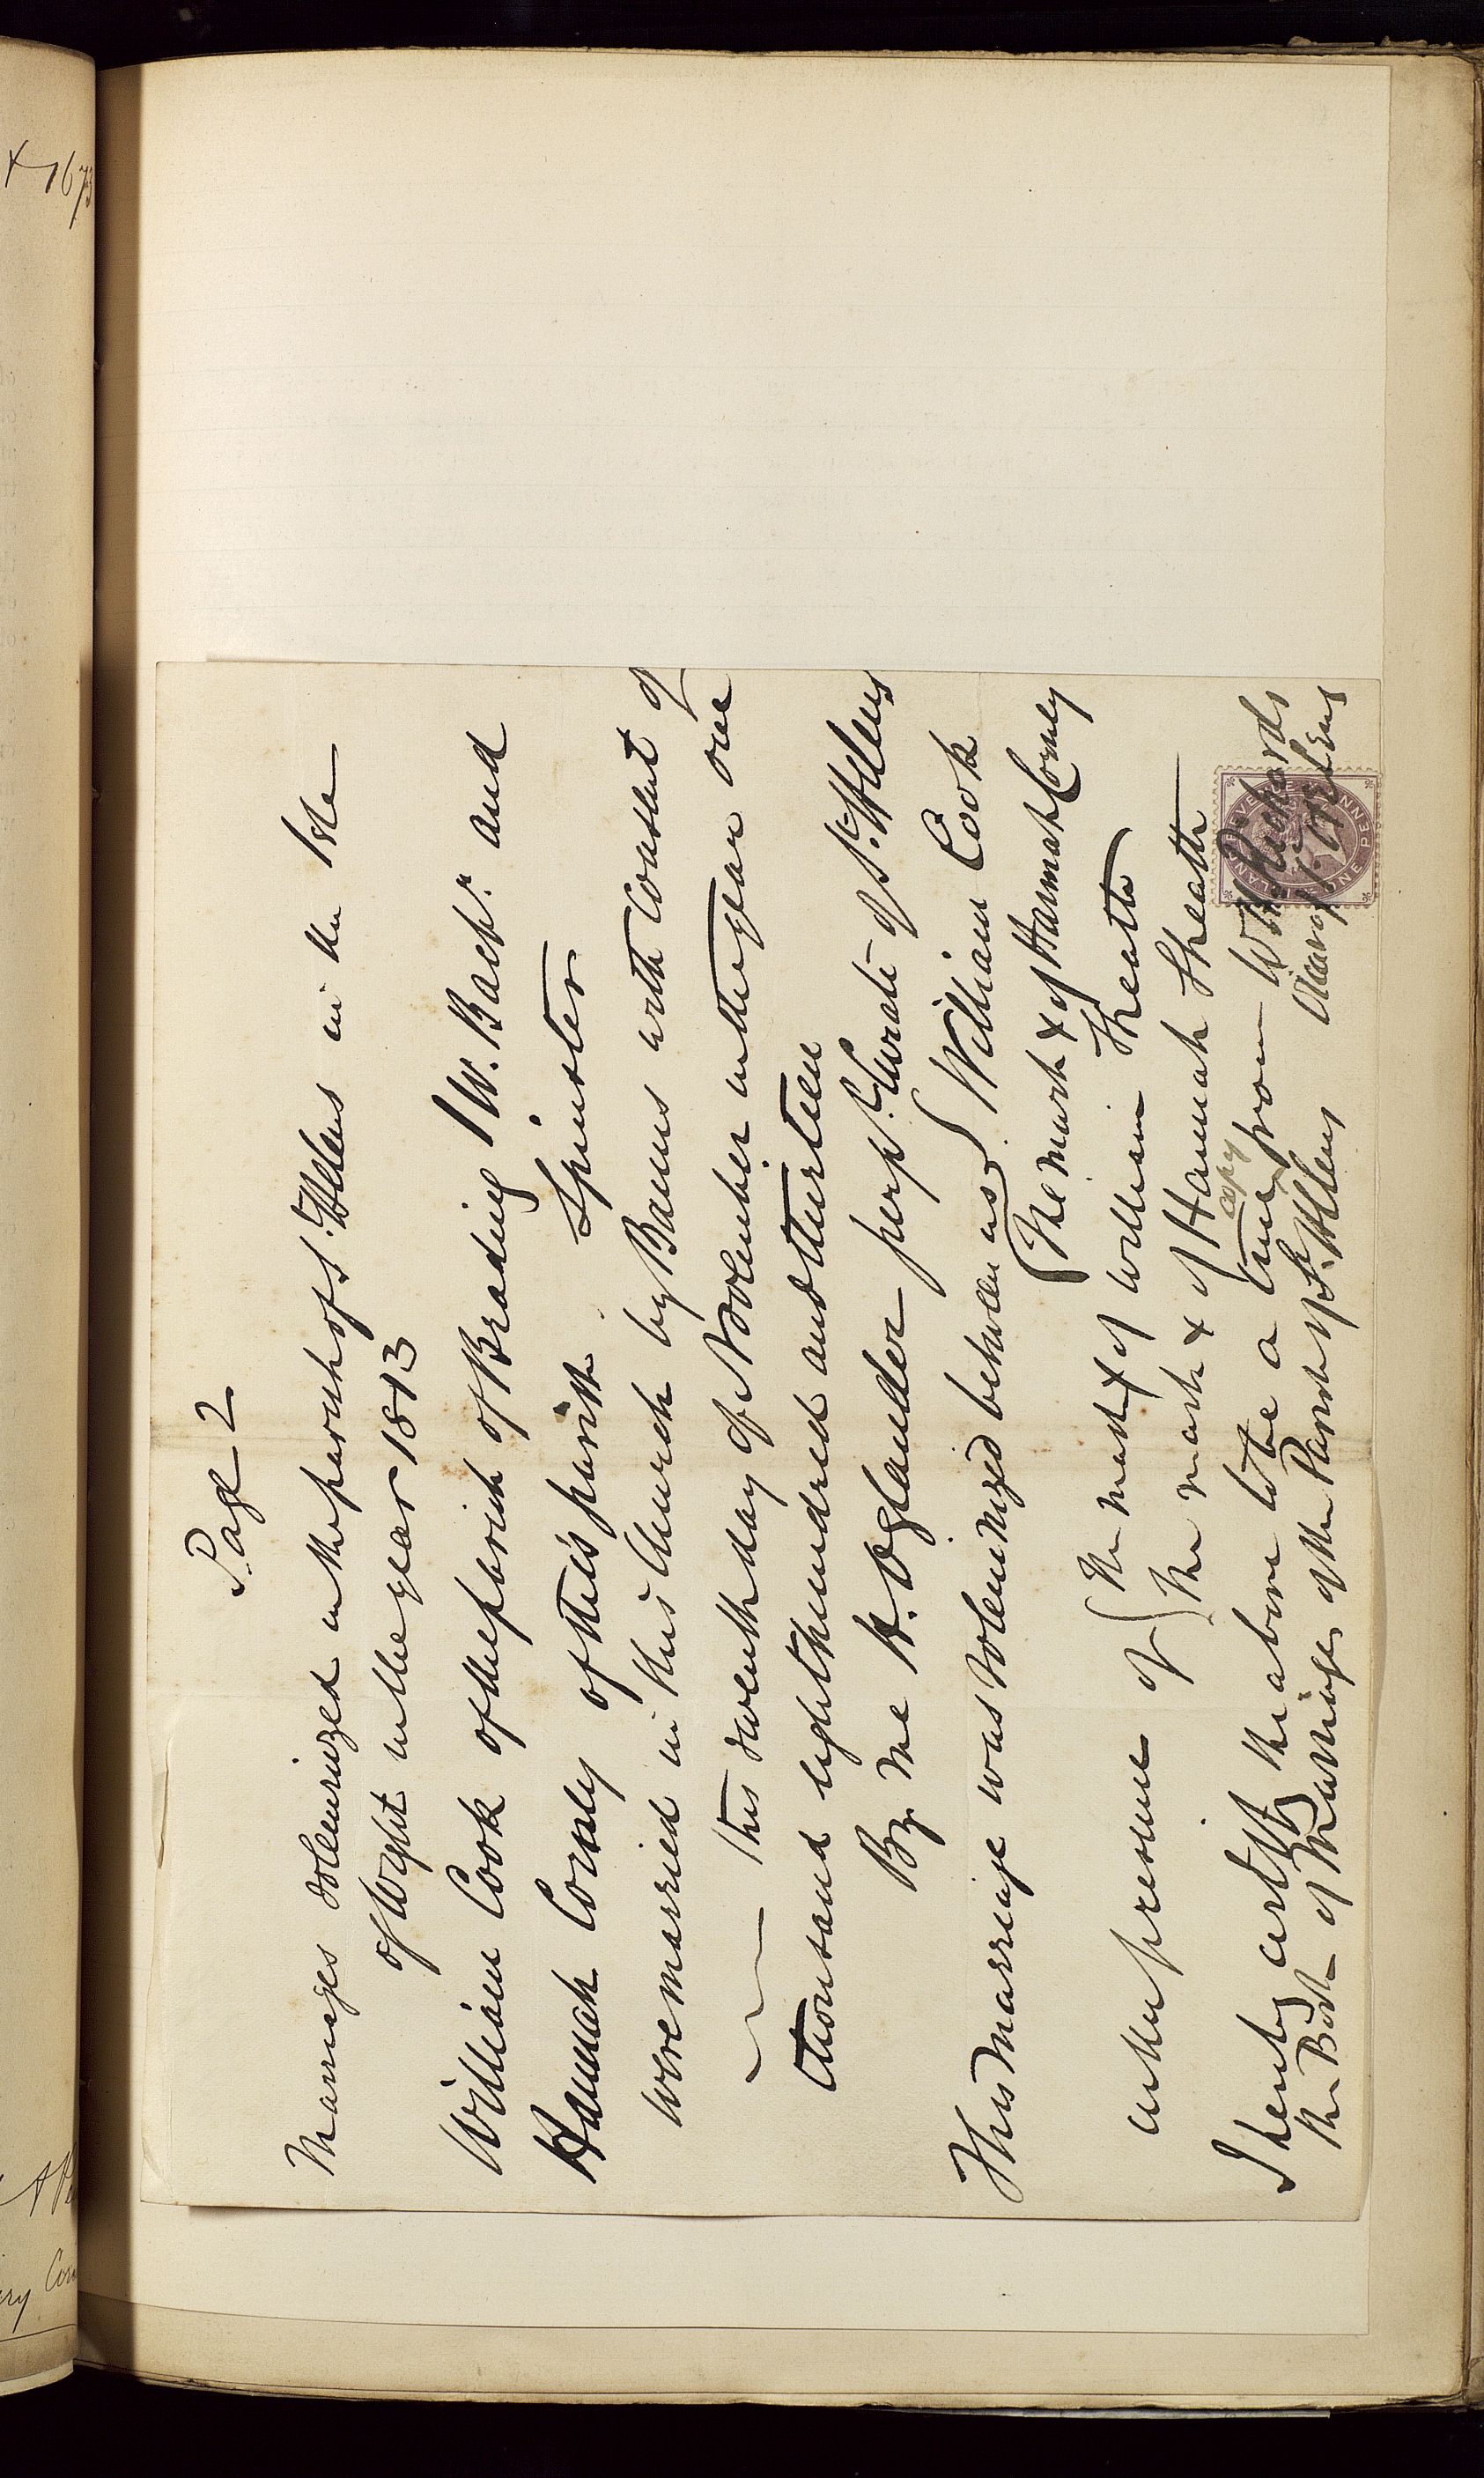 Page 2
Marriages solemnized in the parish of St. Helens in the Isle
of Wight in the year 1813
William Cook of the parish of Brading I W. Bachr. and
Hannah Comley of this parish Spinster
were married in this Church by Banns with Consent of
this seventh day of November in the year one
thousand eight hundred and thirteen
By me H. Oglander perpl. Curate of St. Helens
This marriage was solemnized between us { William Cook
{ The mark x of Hannah Comley
in the presence of { The mark x of William Sheath
The mark x of Hannah Sheath
copy
I hereby certify the above to be a true from Wm. Richards
the Book of Marriages of the Parish of St. Helens Vicar of St. Helens
ONE PENNY
x 1673